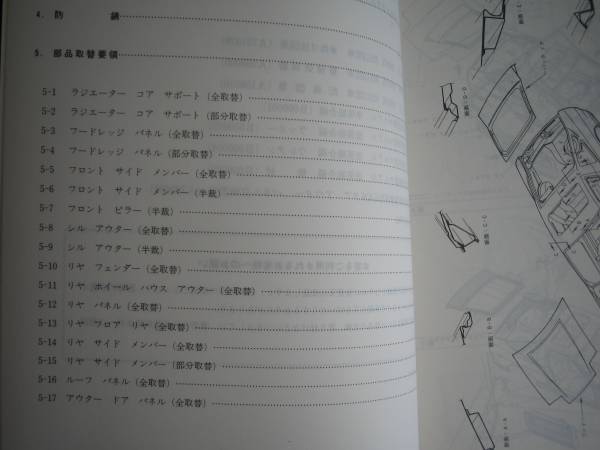 4. 防 錆
5. 部品取替要領
5-1 ラジエーター コア サポート(全取替)
5-2 ラジエーター コア サポート(部分取替)
5-3 フードレッジ パネル(全取替)
5-4 フードレッジ パネル(部分取替)
5-5 フロント サイド メンバー(全取替)
5-6 フロント サイド メンバー(半裁)
5-7 フロント ピラー(半裁)
5-8 シル アウター(全取替)
5-9 シル アウター(半裁)
5-10 リヤ フェンダー(全取替)
5-11 リヤ ホイール ハウス アウター(全取替)
5-12 リヤ パネル(全取替)
5-13 リヤ フロア リヤ(全取替)
5-14 リヤ サイド メンバー(全取替)
5-15 リヤ サイド メンバー(部分取替)
5-16 ルーフ パネル(全取替)
5-17 アウター ドア パネル(全取替)